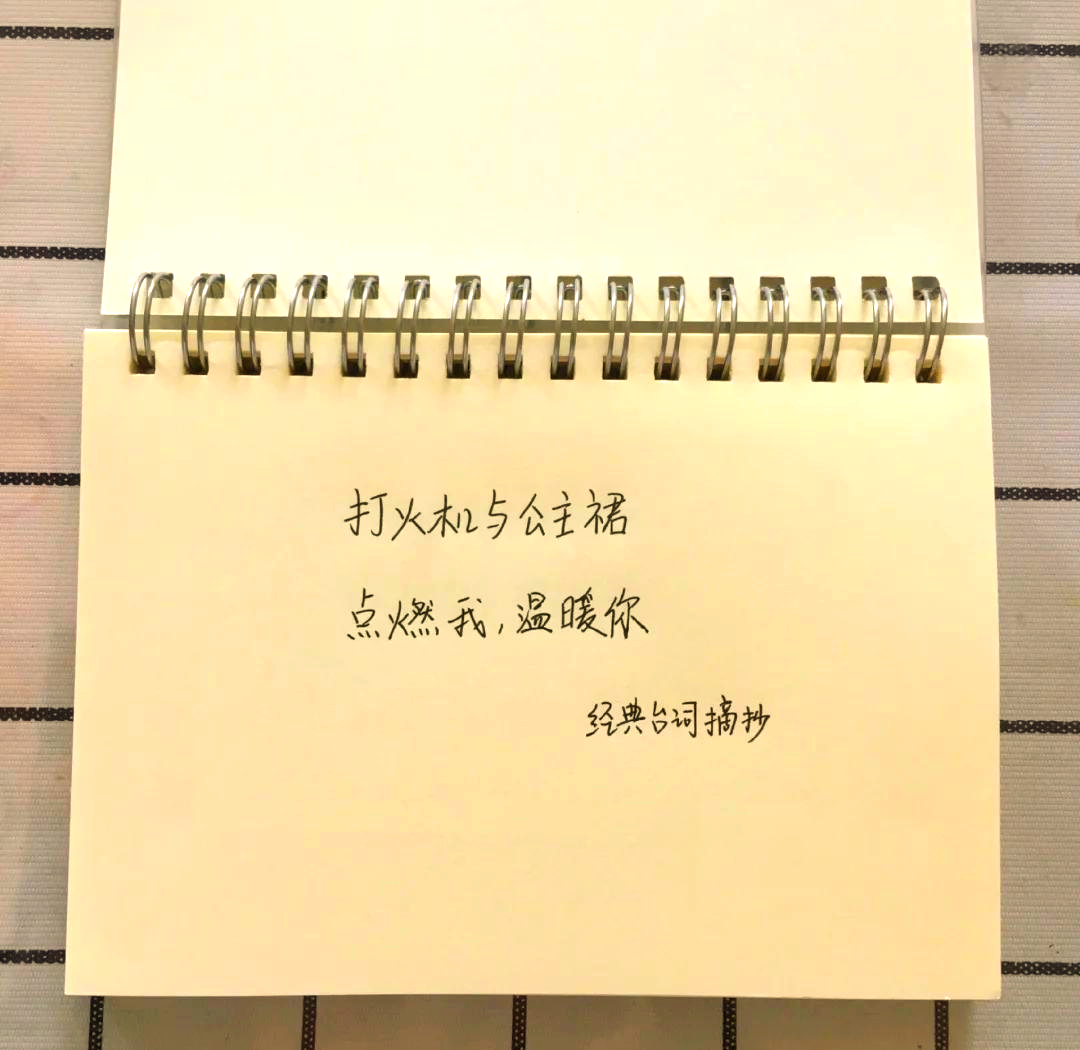 打火机与公主裙
点燃我，温暖你
经典台词摘抄